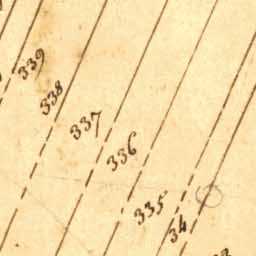 339
338
337
336
335
34